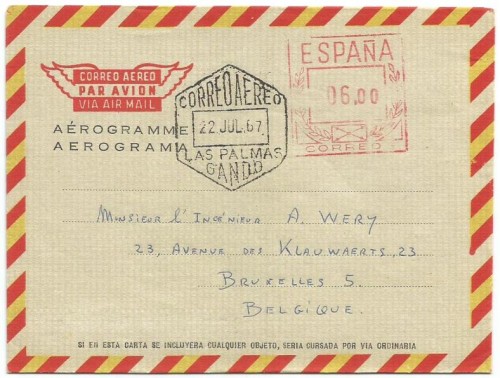 CORREO AEREO
PAR AVION
VIA AIR MAIL
AÉROGRAMME
AEROGRAMA
CORREO AEREO
22 JUL. 67
LAS PALMAS
GANDO
ESPAÑA
06,00
CORREO
Monsieur l'Ingénieur A. WERY
23, Avenue des Klauwaerts, 23
Bruxelles 5.
Belgique.
SI EN ESTA CARTA SE INCLUYERA CUALQUIER OBJETO, SERIA CURSADA POR VIA ORDINARIA